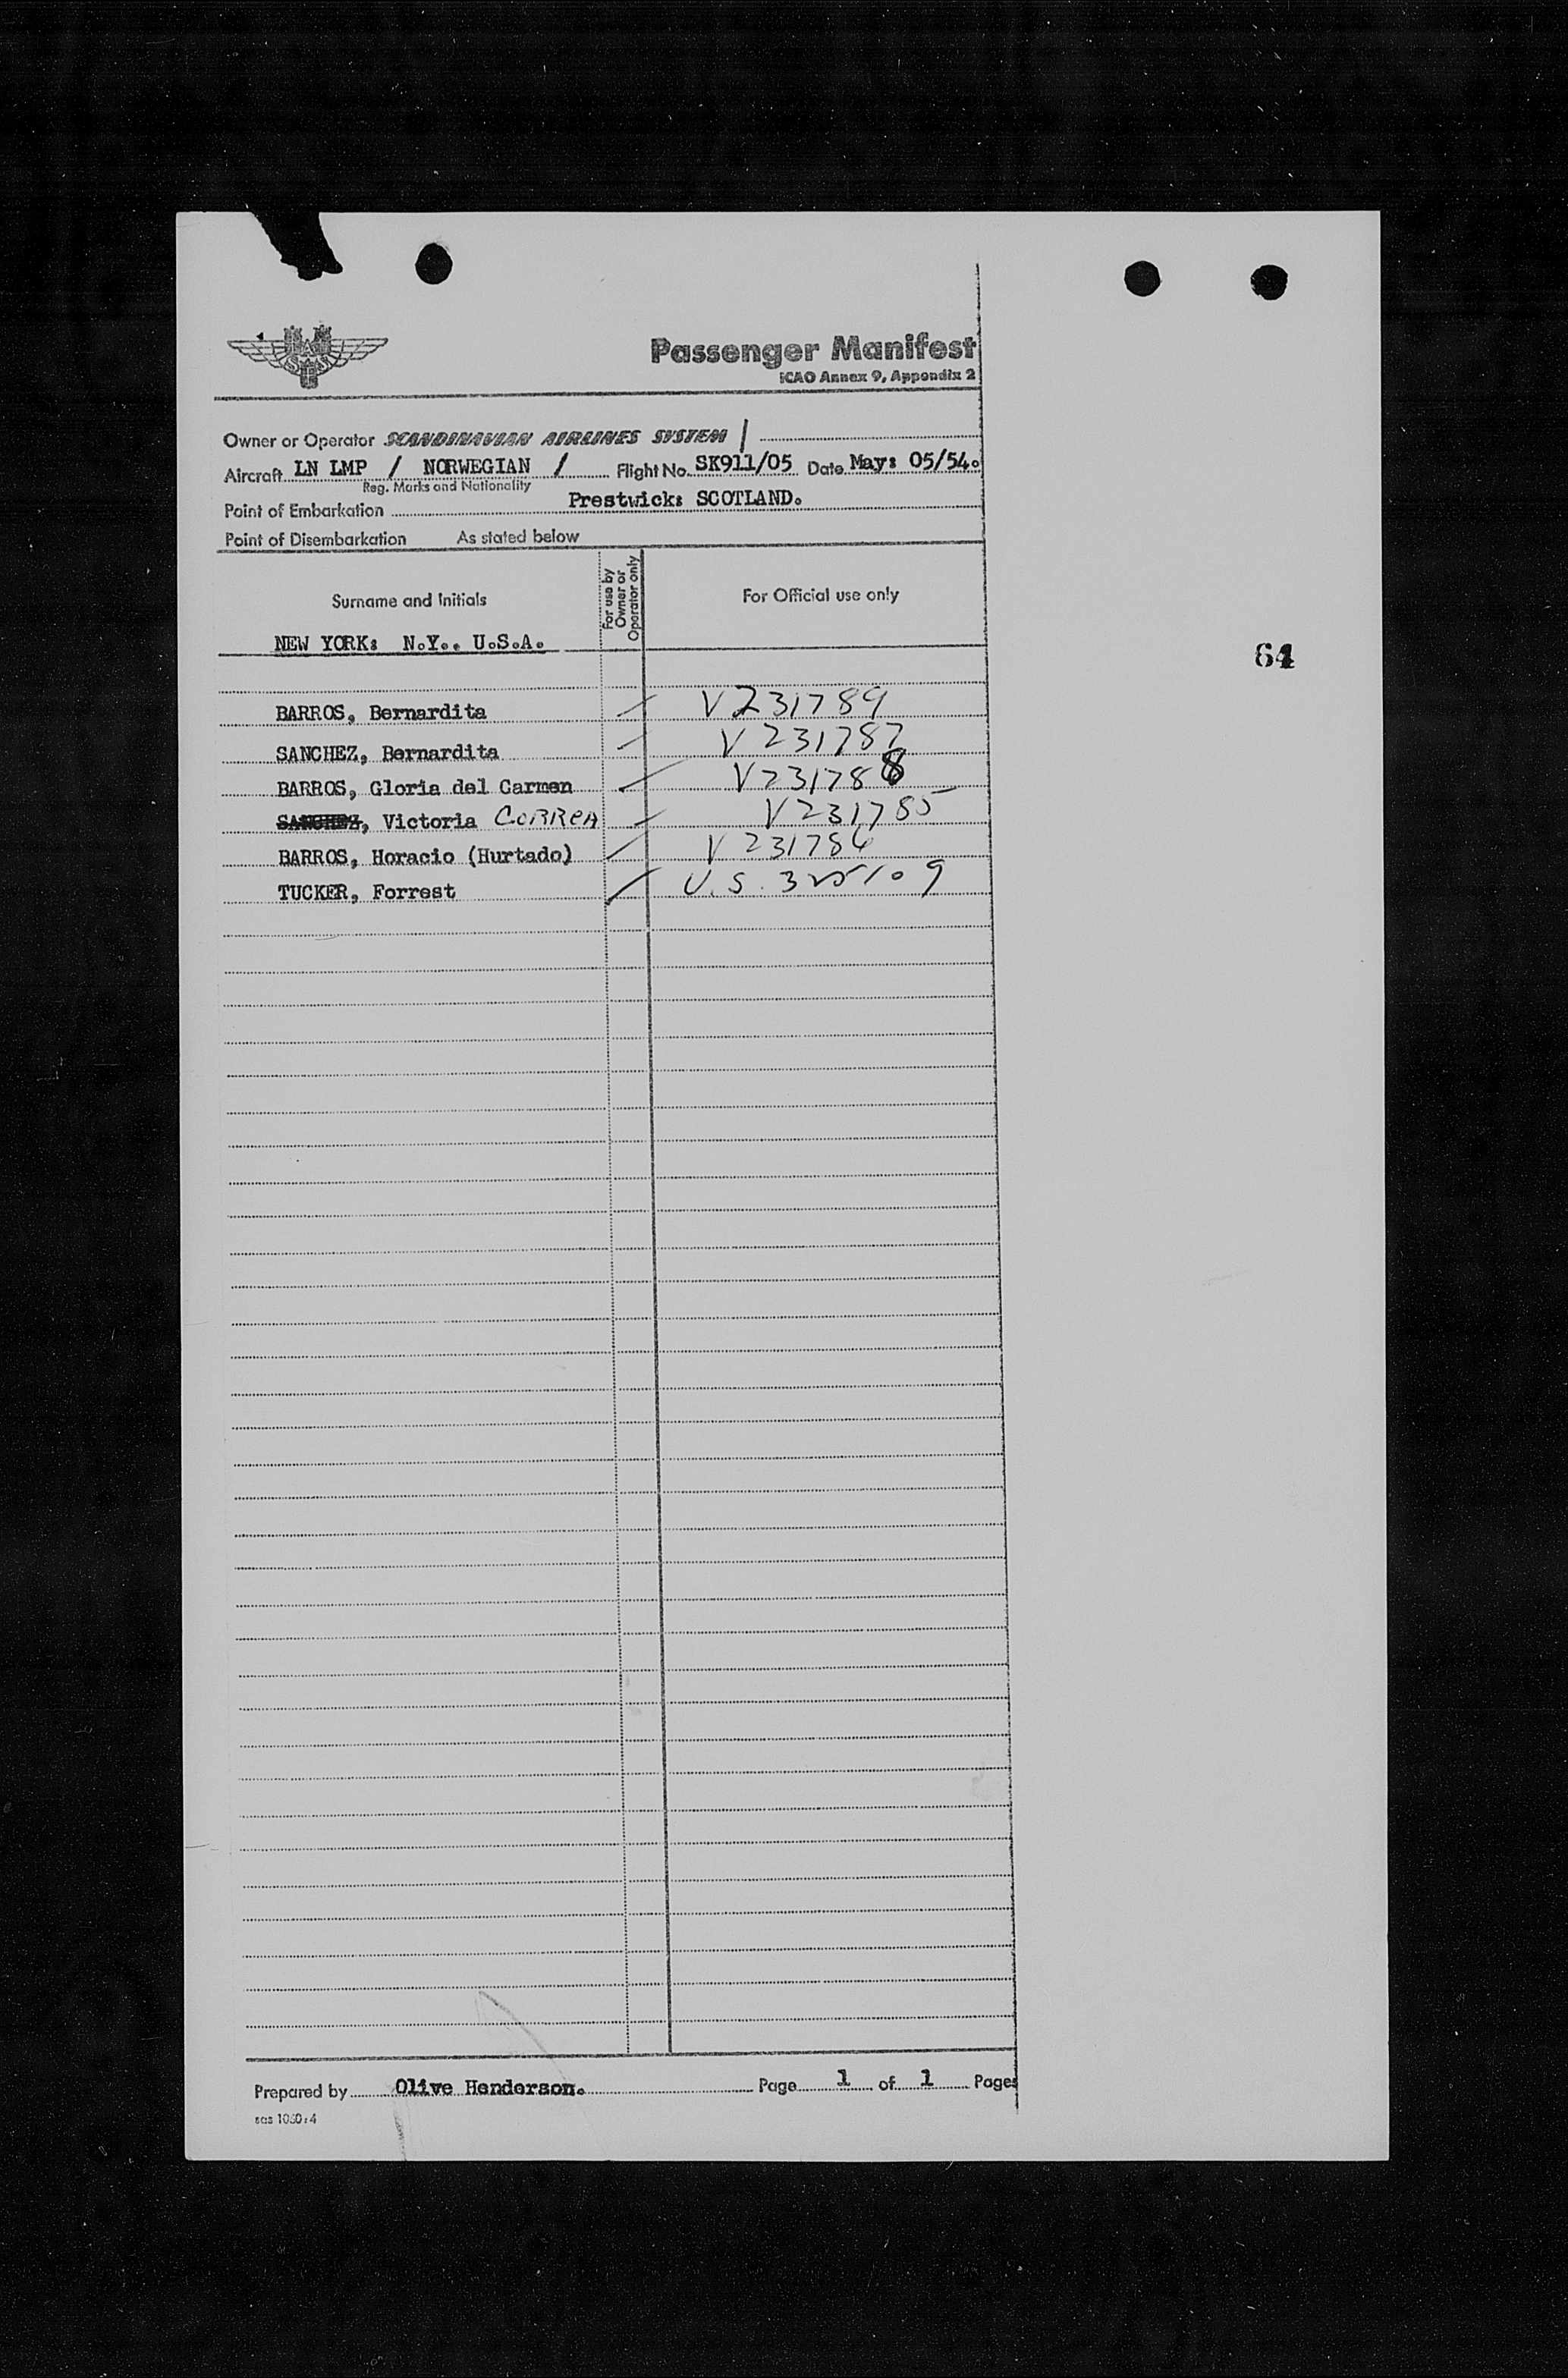 Passenger Manifest
ICAO Annex 9, Appendix 2
Owner or Operator SCANDINAVIAN AIRLINES SYSTEM /
Aircraft LN LMP / NORWEGIAN / Flight No. SK911/05 Date May: 05/54.
Reg. Marks and Nationality
Point of Embarkation Prestwick: SCOTLAND.
Point of Disembarkation As stated below
Surname and Initials
For use by
Owner or
Operator only
For Official use only
NEW YORK: N.Y.. U.S.A.
64
BARROS, Bernardita V231789
SANCHEZ, Bernardita V231787
BARROS, Gloria del Carmen V231788
SANCHEZ, Victoria CORREA V231785
BARROS, Horacio (Hurtado) V231786
TUCKER, Forrest U.S. 325109
Prepared by Olive Henderson. Page 1 of 1 Pages
sas 1030:4